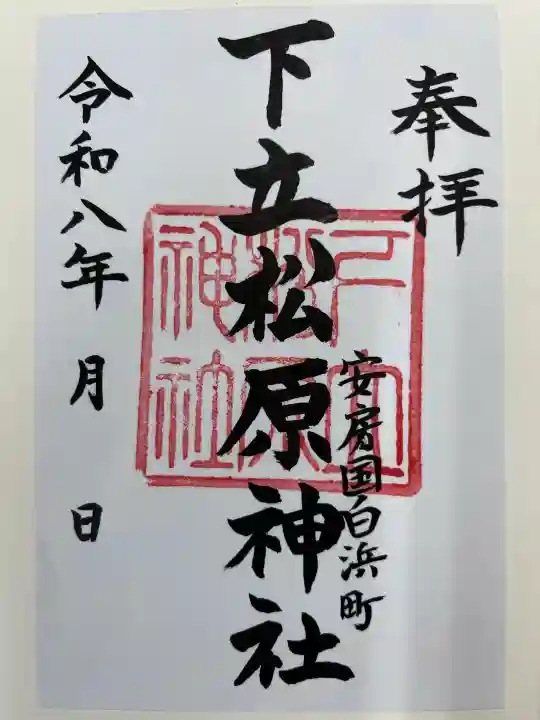 奉拝
安房国白浜町
下立松原神社
令和八年 月 日
下立松原神社